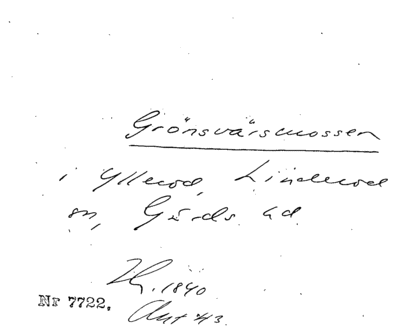 Grönsvärsmossen
i Yllerod, Linderod
sn, Gärds hd
1840
Nr 7722.